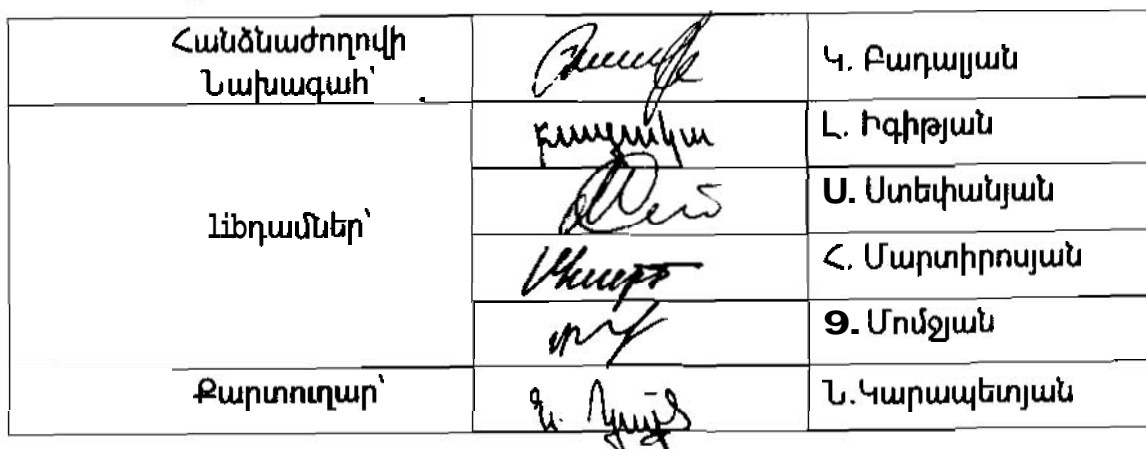 Հանձնաժողովի
Նախագահ՝
Կ. Բադալյան
Լ. Իգիթյան
libդամներ՝
Ս. Ստեփանյան
Հ. Մարտիրոսյան
9. Մոմջյան
Քարտուղար՝
Ն.Կարապետյան